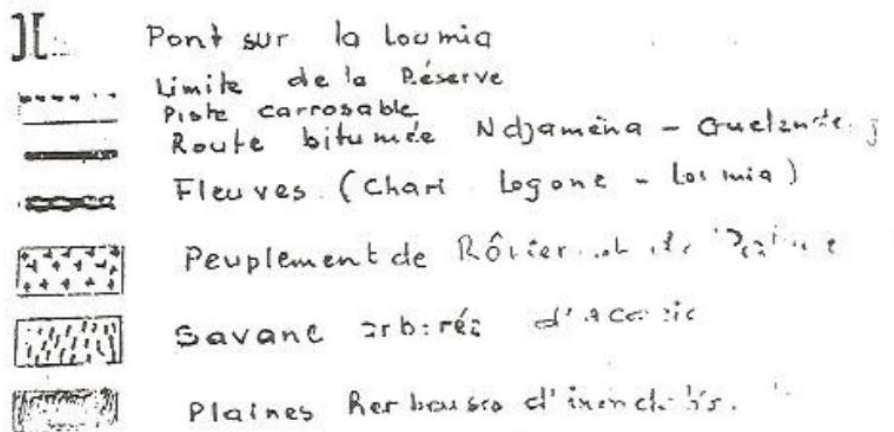 Pont sur la Loumia
Limite de la Réserve
Piste carrosable
Route bitumée Ndjaména -
Fleuves (Chari Logone - Loumia)
Peuplement de Rônier
Savane arborée d'acacia
Plaines Herbeuses